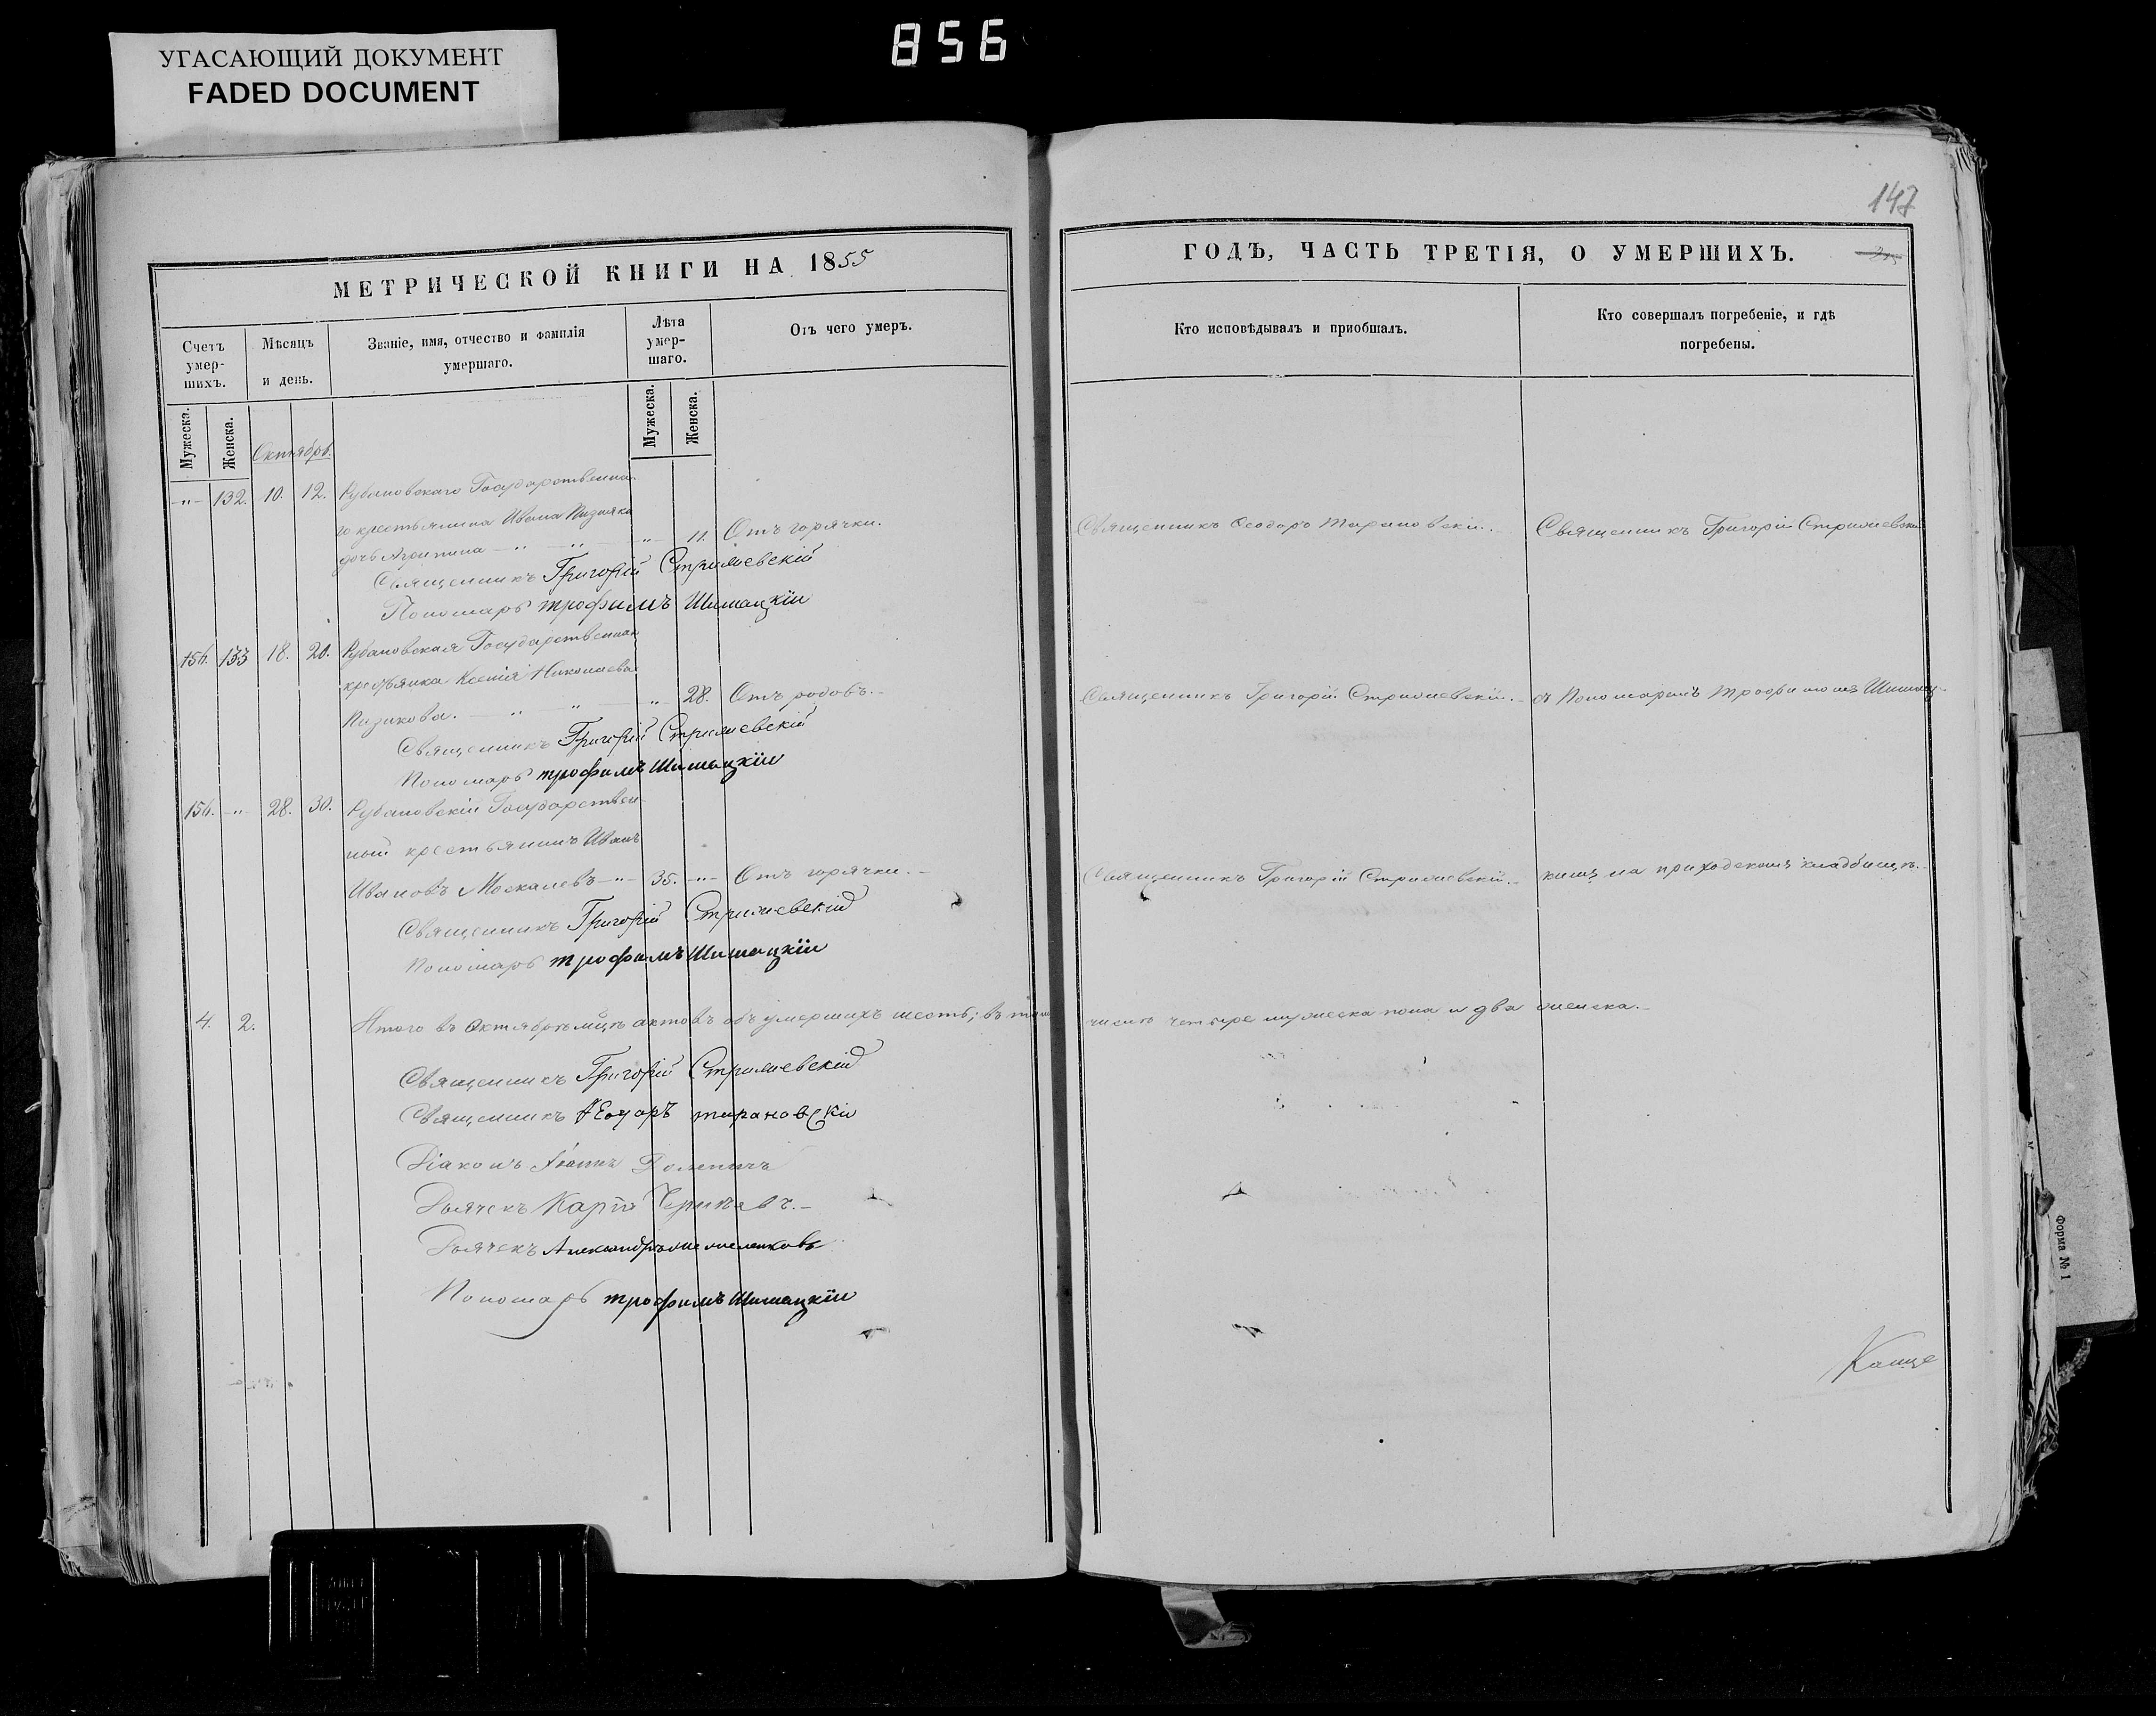 856
УГАСАЮЩИЙ ДОКУМЕНТ
FADED DOCUMENT
147
МЕТРИЧЕСКОЙ КНИГИ НА 1855
Счетъ умер-шихъ.
Мѣсяцъ и день.
Званіе, имя, отчество и фамилія умершаго.
Лѣта умер-шаго.
Отъ чего умеръ.
Мужеска.
Женска.
Мужеска.
Женска.
Октябрь.
-"- 132. 10. 12. Рубановскаго Государственна-
го крестьянина Ивана
дочь Агрипина - " - " - " - 11. Отъ горячки.
Священникъ Григорій
Пономарь трофимъ Шишацкїи
156. 133 18. 20. Рубановская Государственная
крестьянка Ксенія Николаева
" - " - " - 28. Отъ родовъ.-
Священникъ Григорій
Пономарь трофимъ Шишацкїи
156. -"- 28. 30. Рубановскій Государствен-
ный крестьянинъ Иванъ
Ивановъ Москалевъ -"- 35. -"- Отъ горячки.-
Священникъ Григорій
Пономарь трофимъ Шишацкїи
4. 2. Итого въ Октябрѣ мцѣ актовъ объ умершихъ шесть; въ томъ
Священникъ Григорій
Священникъ Ѳеодоръ тарановскіи
Діаконъ Іоаннъ
Дьячекъ Карпъ
Дьячекъ Александръ
Пономарь трофимъ Шишацкїи
ГОДЪ, ЧАСТЬ ТРЕТІЯ, О УМЕРШИХЪ.
Кто исповѣдывалъ и пріобщалъ.
Кто совершалъ погребеніе, и гдѣ погребены.
Священникъ Ѳеодоръ Тарановскій.-
Священникъ Григорій
Священникъ Григорій
съ Пономаремъ Трофимомъ Шишац-
Священникъ Григорій
кимъ на приходскомъ кладбищѣ.-
числѣ четыре мужеска пола и два женска.-
Форма № 1